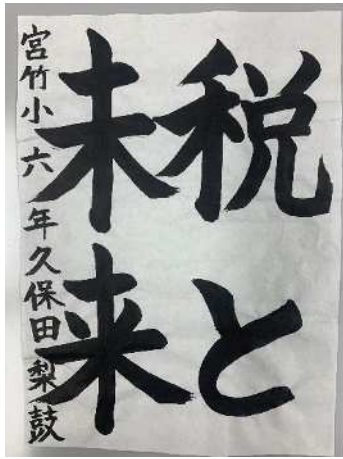 税と
未来
宮竹小六年久保田梨鼓